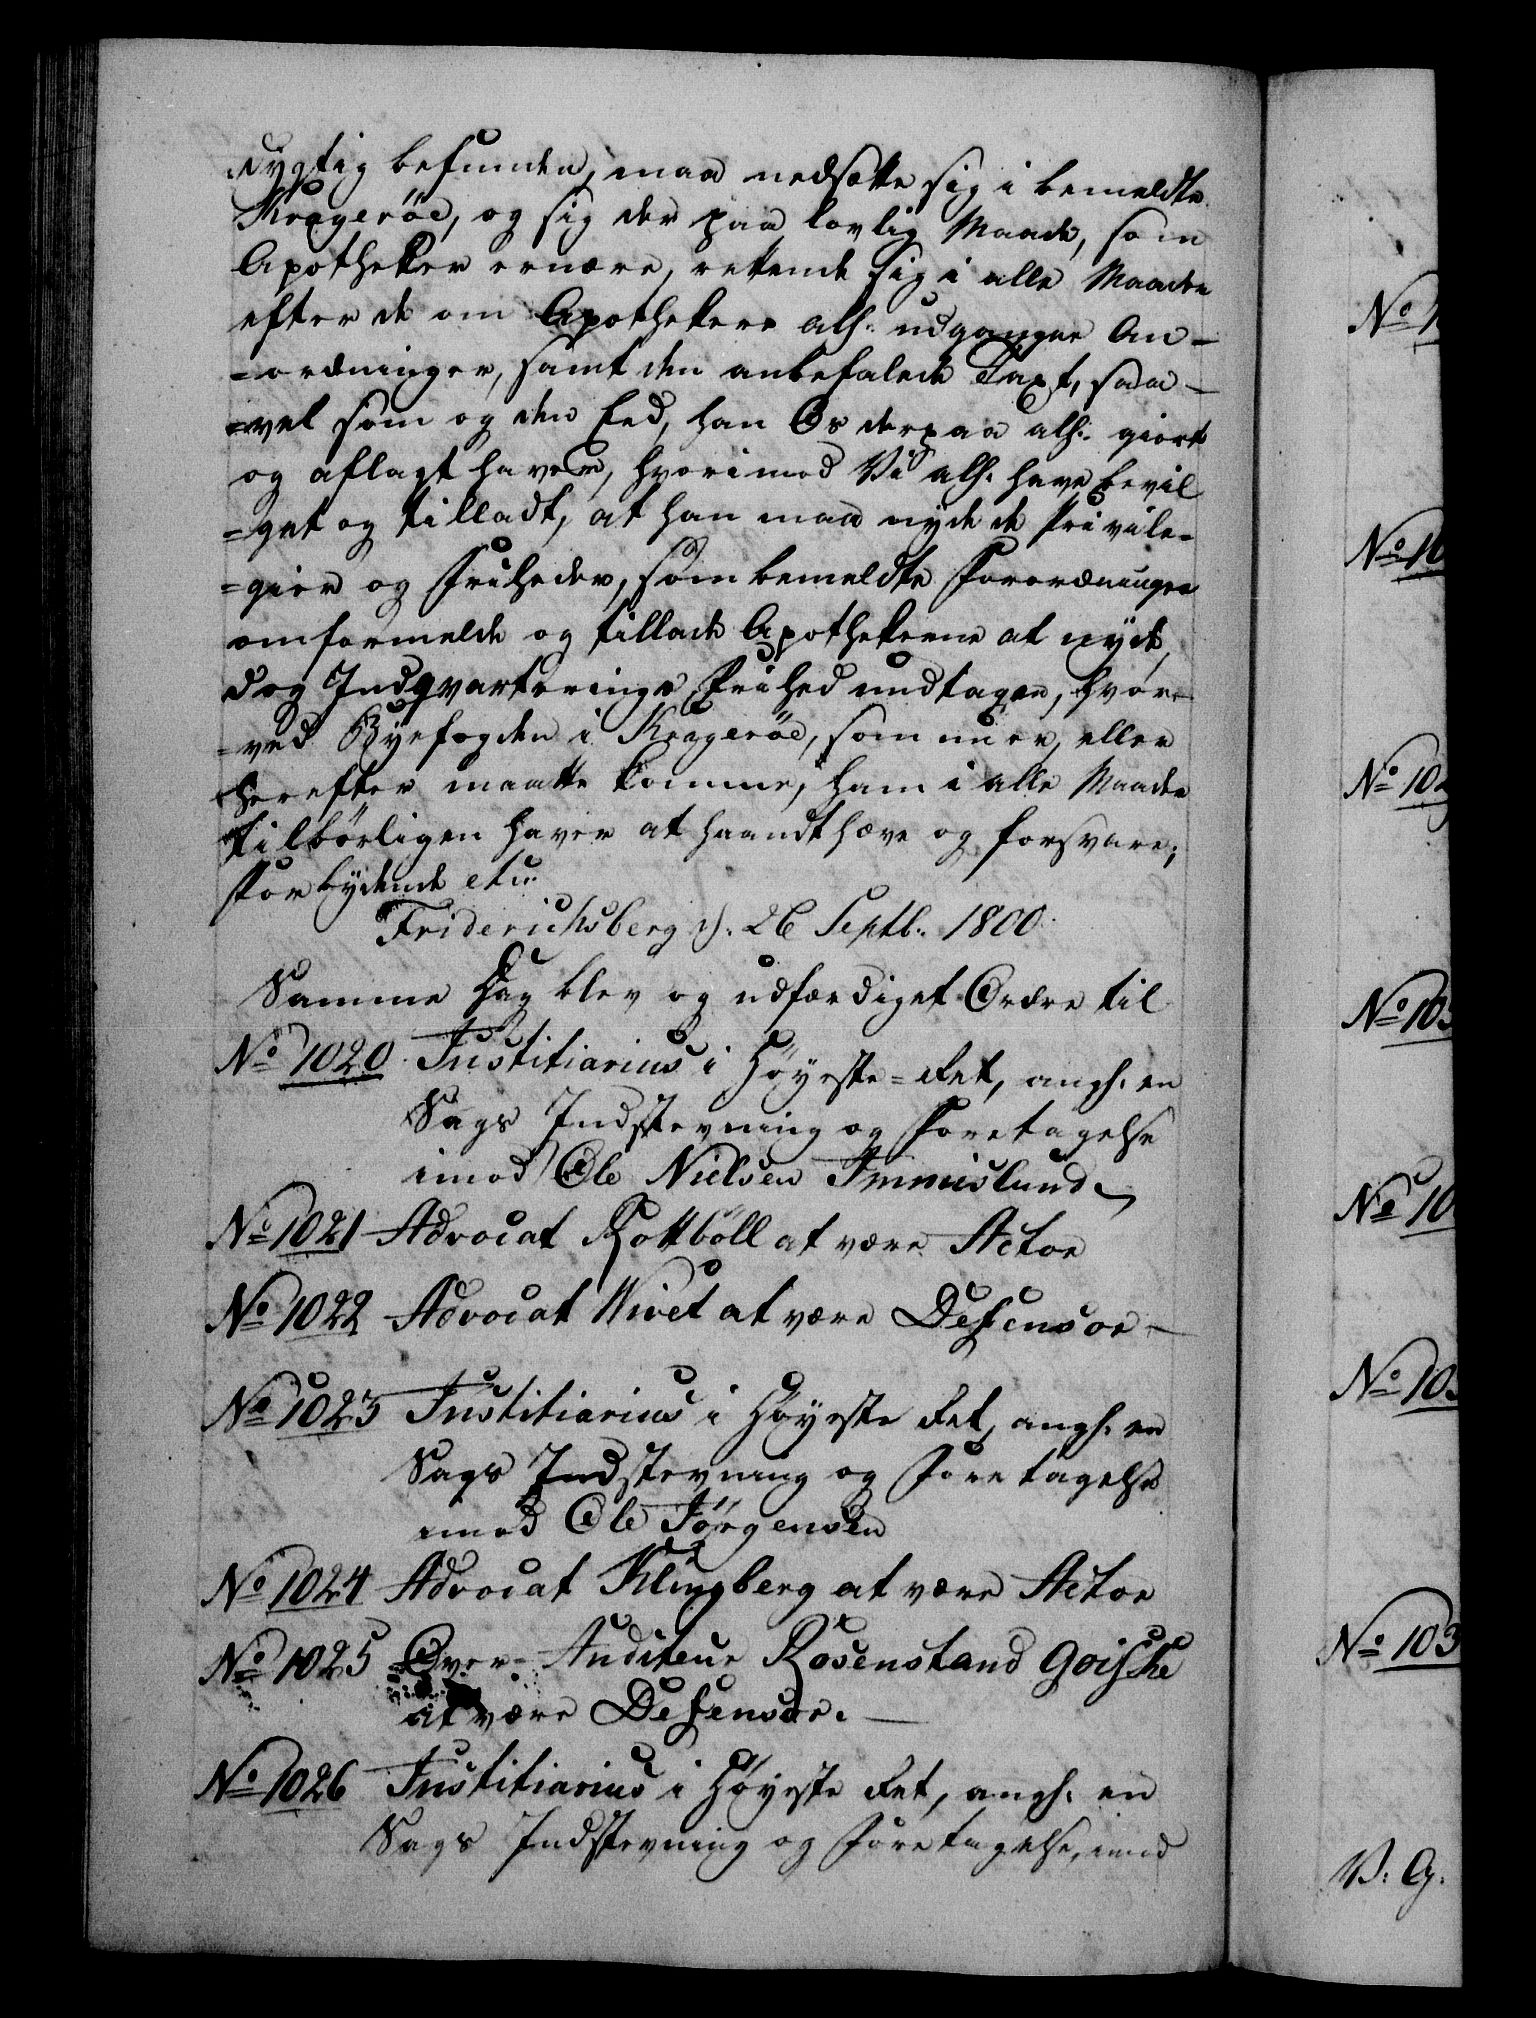 dygtig befunden, maa nedsætte sig i bemeldte
Kragerøe, og sig der paa lovlig Maade, som
Apotheker ernære, rettende sig i alle Maader
efter de om Apothekere alh: udgangne An-
=ordninger, samt den anbefalede Taxt, saa-
=vel som og den Eed, han Os derpaa alh: giort
og aflagt haver, hvorimod Vi alh: have bevil
=get og tilladt, at han maa nyde de Privile-
=gier og Friheder, som bemeldte Forordninger
omformelde og tillade Apothekerne at nyde,
dog Indqvarterings Frihed undtagen, hvor-
=ved Byefogden i Kragerøe, som nu er, eller
herefter maatte komme, ham i alle Maader
tilbørligen haver at haandthæve og forsvare;
Forbydende etc:
Friderichsberg d: 26 Septb: 1800.
Samme Dag blev og udfærdiget Ordre til
No 1020 Justitiarius i Høyeste=Ret, angh: en
Sags Indstevning og Foretagelse
imod Ole Nielsen Immislund
No 1021 Advocat Rottbøll at være Actor
No 1022 Advocat Wivet at være Defensor-
No 1023 Justitiarius i Høyeste Ret, angh: en
Sags Indstevning og Foretagelse
imod Ole Jørgensen
No 1024 Advocat Klingberg at være Actor
No 1025 Over-Auditeur Rosenstand Goiske
at være Defensor.
No 1026 Justitiarius i Høyeste Ret, angh: en
Sags Indstevning og Foretagelse, imod
No 10
No 10
No 10
No 10
No 10
No 103
V: G.